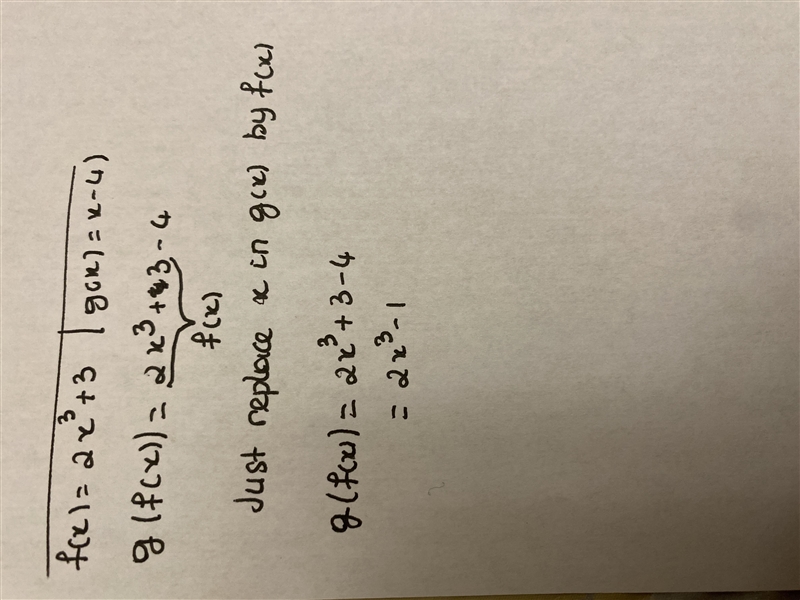 f(x) = 2x³+3 | g(x) = x-4)
g(f(x)) = 2x³+3-4
f(x)
Just replace x in g(x) by f(x)
g(f(x)) = 2x³+3-4
= 2x³-1